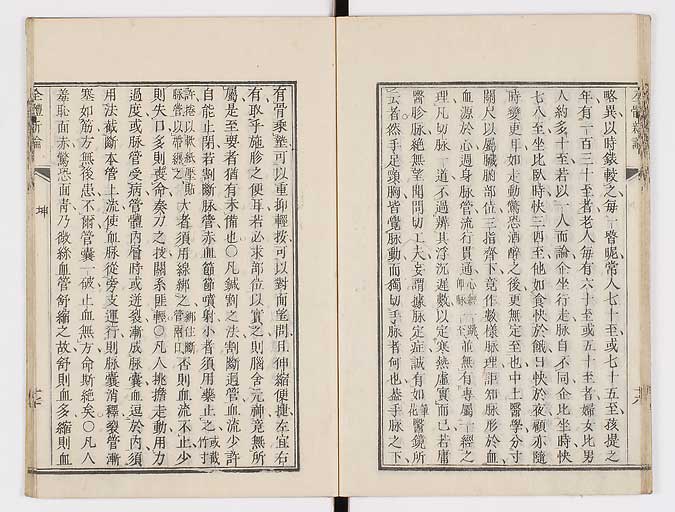 略異以時錶較之每一瞥呢常人七十至或七十五至孩提之
年有一百三十至者老人每有六十至或五十至者婦女比男
人約多十至若以一人而論企坐行走脉自不同企比坐時快
七八至坐比臥時快三四至他如食快於餓日快於夜顧亦隨
時變更再如走動驚恐酒醉之後更無定至也中土醫學分寸
關尺以屬臟腑部位三指齊下竟作數樣脉理詎知脉形於血
血源於心週身脉管流行貫通心經一跳即脉一至並無有專屬一經之
理凡切脉一道不過辨其浮沉遲數以定寒熱虛實而已若庸
醫胗脉絕無望聞問切工夫妄謂據脉定症誠有如華佗醫鏡所
云者然乎手足頸胸皆覺脉動而獨切手脉者何也葢手脉之下
有骨乘墊可以重抑輕按可以對面望問且伸縮便捷左宜右
有取乎施胗之便耳若必求部位以實之則腦舍元神竟無所
屬是至要者猶有未備也○凡鍼割之法割斷迴管血流少許
自能止閉若割斷脉管赤血節節噴射小者須用藥止之或截竹打
許捲以軟紙壓貼脉管以帶纏之大者須用線綁之綁住斷管兩口否則血流不止少
則失口多則喪命奏刀之技關系匪輕○凡人挑擔走動用力
過度或脉管受病管體內層時或迸裂漸成脉囊血逗於內須
用法截斷本管上流使血脉從旁支運行則脉囊消釋裂管漸
塞如筋方無後患不爾管囊一破止血無方命斯絕矣○凡人
羞恥面赤驚恐面青乃微絲血管舒縮之故舒則血多縮則血
全體新論
坤